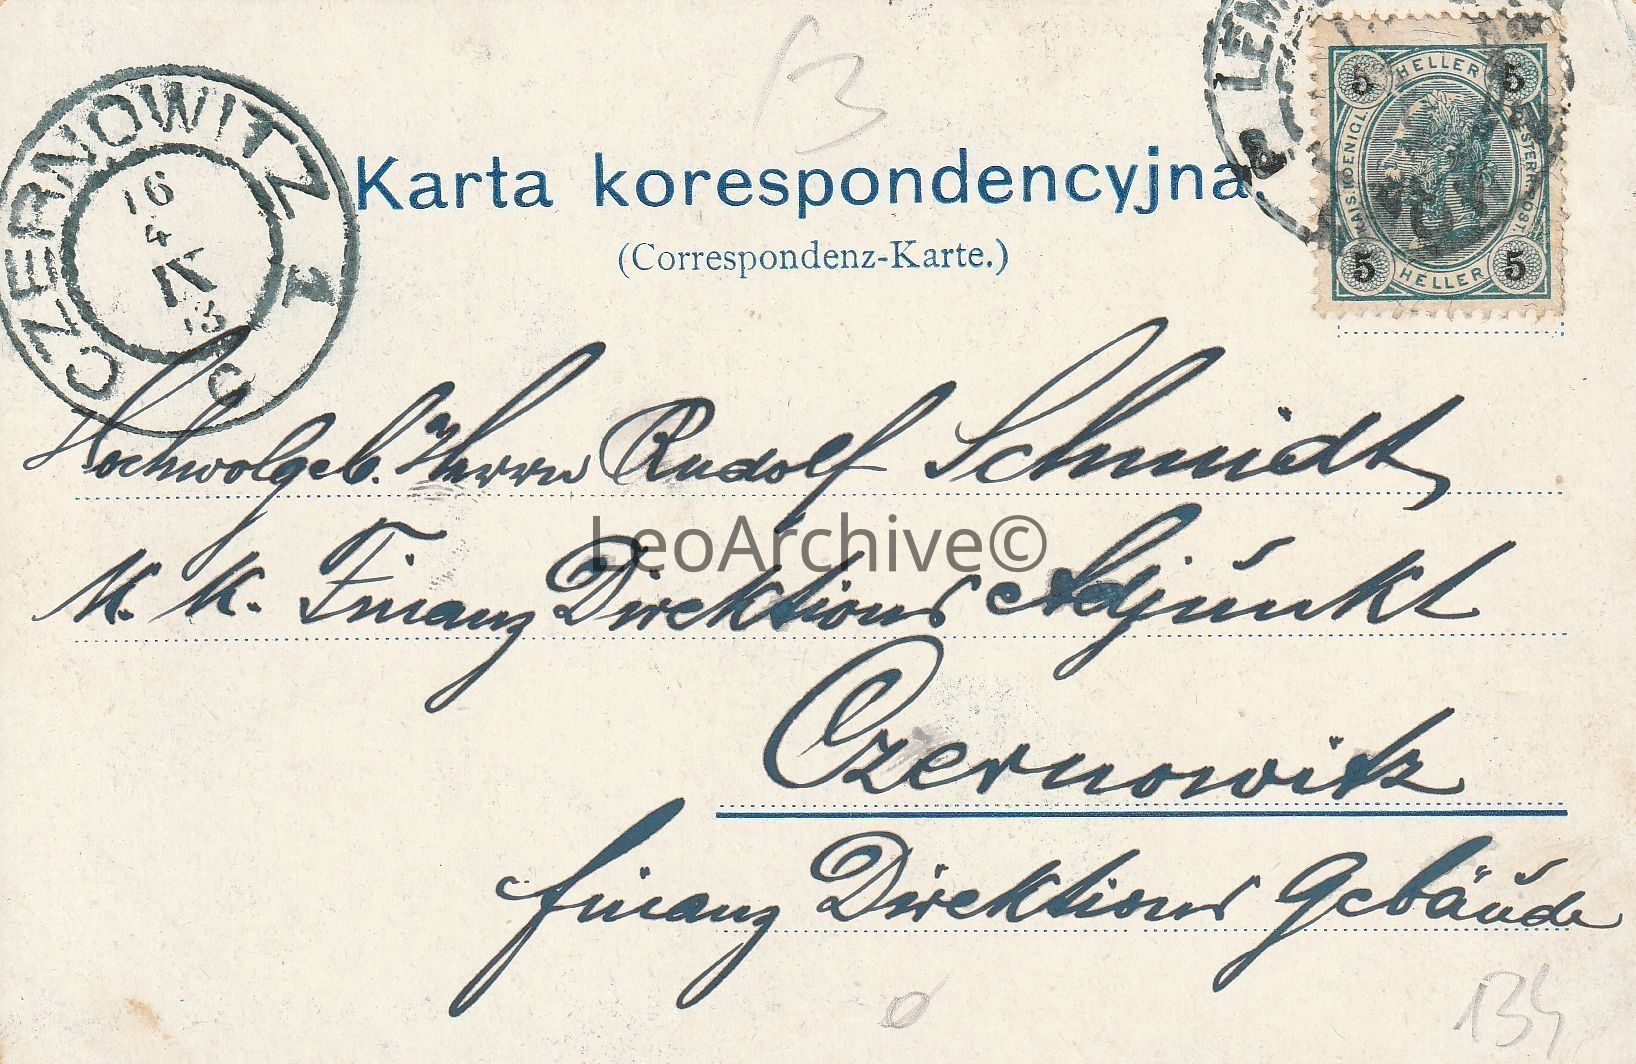 CZERNOWITZ 1
16
4
IX
03
c
LEM
Karta korespondencyjna.
(Correspondenz-Karte.)
5 HELLER 5
5 HELLER 5
Hochwolgeb. Herrn Rudolf Schmidt
K. K. Finanz Direktions Adjunkt
Czernowitz
finanz Direktions Gebäude
LeoArchive©
134